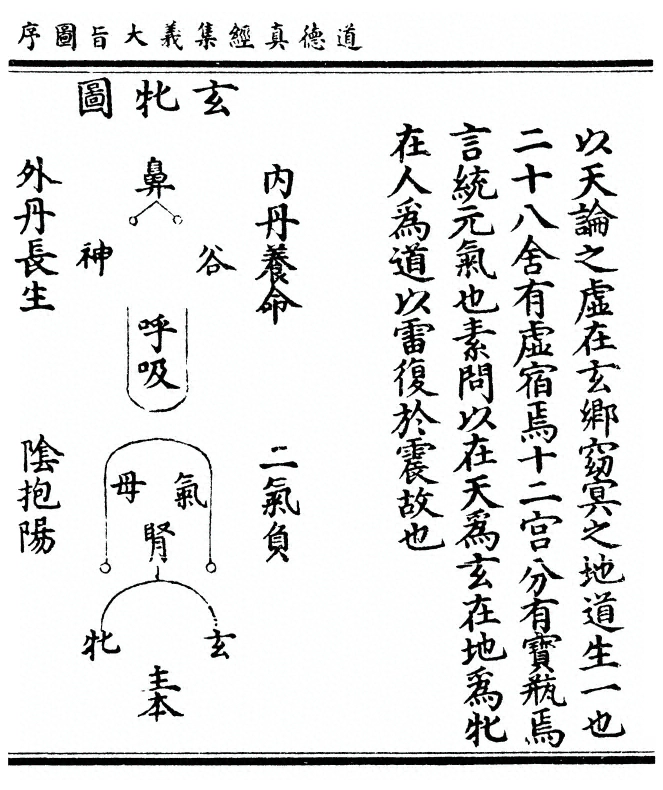 道德真經集義大旨圖序
以天論之虛在玄鄉窈冥之地道生一也
二十八舍有虛宿焉十二宮分有寶瓶焉
言統元氣也素問以在天爲玄在地爲牝
在人爲道以雷復於震故也
玄牝圖
內丹養命
二氣負
鼻
谷
神
呼吸
氣
母
腎
玄
牝
主本
外丹長生
陰抱陽